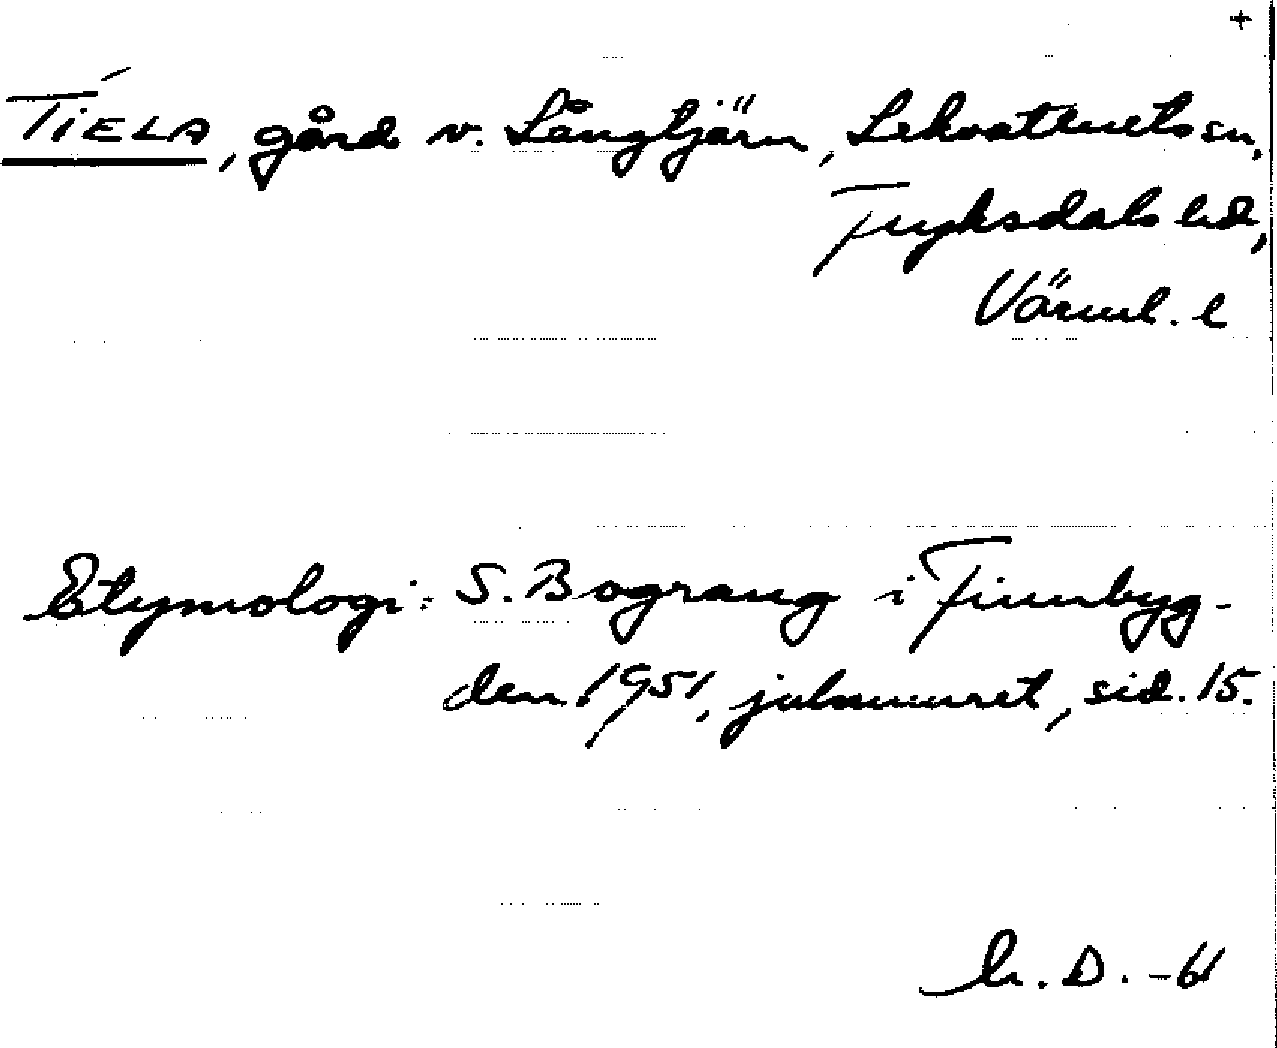 +
TIELA, gård v. Långtjärn, Lekvattnets sn,
Fryksdals hd,
Värml. l
Etymologi: S. Bograng i Finnbyg-
den 1951, julnumret, sid. 15.
D. -61